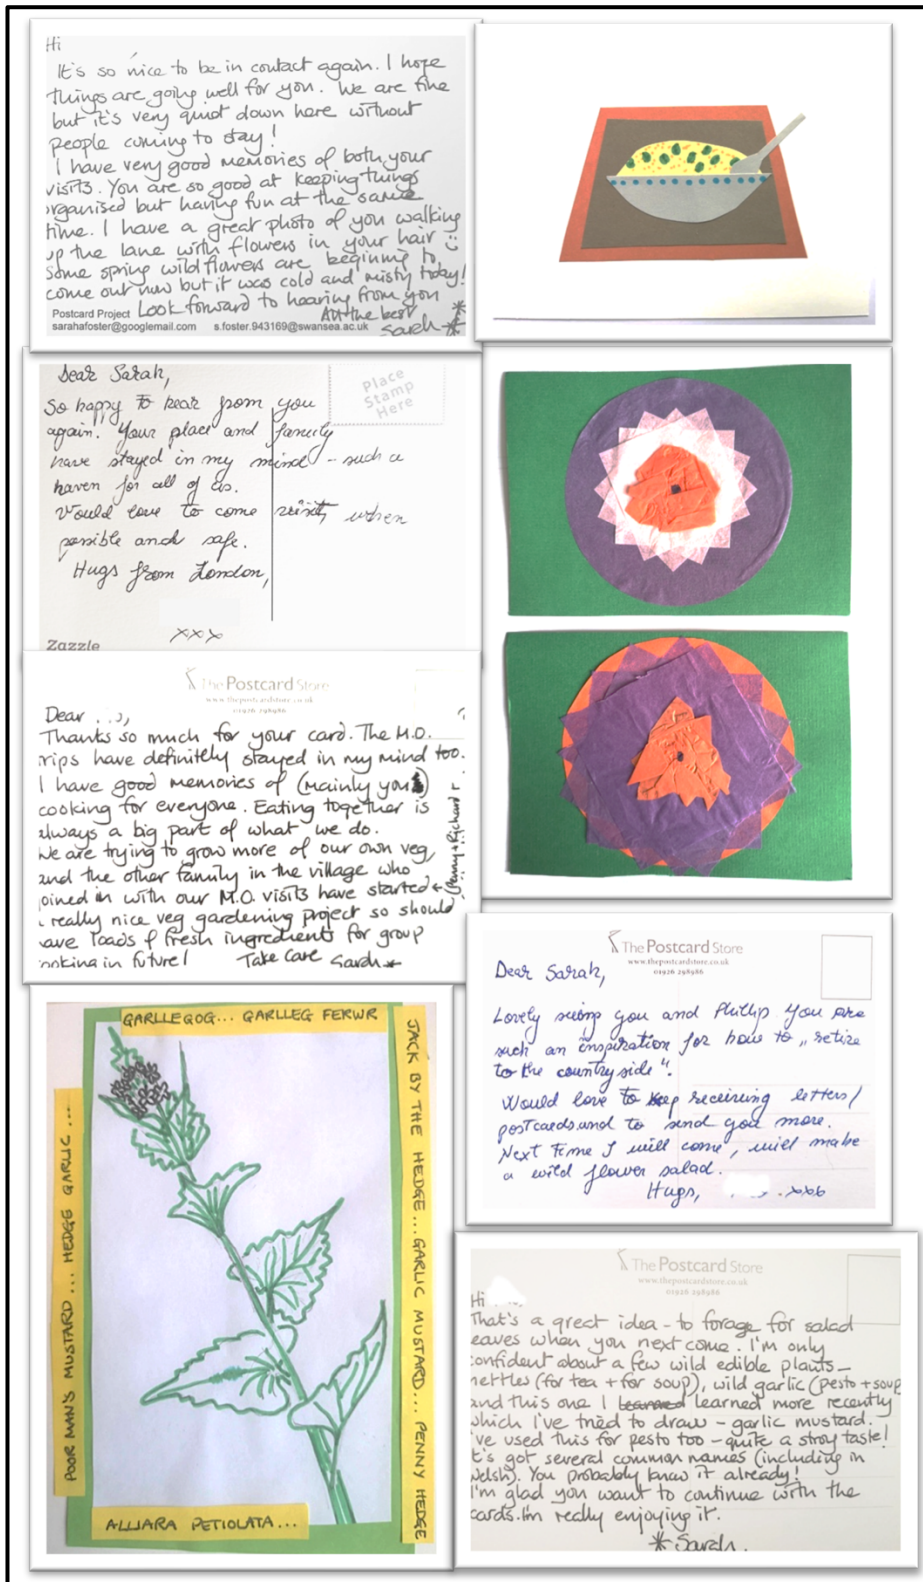 Hi
It's so nice to be in contact again. I hope
things are going well for you. We are fine
but it's very quiet down here without
people coming to stay!
I have very good memories of both your
visits. You are so good at keeping things
organised but having fun at the same
time. I have a great photo of you walking
up the lane with flowers in your hair
Some spring wildflowers are beginning to
come out now but it was cold and misty today!
Look forward to hearing from you
All the best
Sarah
Postcard Project
sarahafoster@googlemail.com s.foster.943169@swansea.ac.uk
Dear Sarah,
So happy to hear from you
again. Your place and family
have stayed in my mind - such a
haven for all of us.
Would love to come visit, when
possible and safe.
Hugs from London,
xxx
Place
Stamp
Here
Zazzle
The Postcard Store
www.thepostcardstore.co.uk
01926 298986
Dear
Thanks so much for your card. The M.O.
rips have definitely stayed in my mind too.
I have good memories of (mainly you)
cooking for everyone. Eating together is
always a big part of what we do.
We are trying to grow more of our own veg,
and the other family in the village who
joined in with our M.O. visits have started
(Penny + Richard
really nice veg gardening project so should
ave loads of fresh ingredients for group
ooking in future!
Take care Sarah
The Postcard Store
www.thepostcardstore.co.uk
01926 298986
Dear Sarah,
Lovely seeing you and Phillip. You are
such an inspiration for how to „retire
to the countryside".
Would love to keep receiving letters/
postcards and to send you more.
Next time I will come, will make
a wild flower salad.
Hugs,
xxx
GARLLEGOG... GARLLEG FERWR
JACK BY THE HEDGE... GARLIC MUSTARD... PENNY HEDGE
POOR MAN'S MUSTARD... HEDGE GARLIC...
ALLIARA PETIOLATA...
The Postcard Store
www.thepostcardstore.co.uk
01926 298986
Hi
That's a great idea - to forage for salad
eaves when you next come. I'm only
confident about a few wild edible plants -
nettles (for tea + for soup), wild garlic (pesto + soup
and this one I learned learned more recently
which I've tried to draw - garlic mustard.
I've used this for pesto too - quite a strog taste!
It's got several common names (including in
Welsh). You probably know it already!
I'm glad you want to continue with the
cards. I'm really enjoying it.
Sarah.